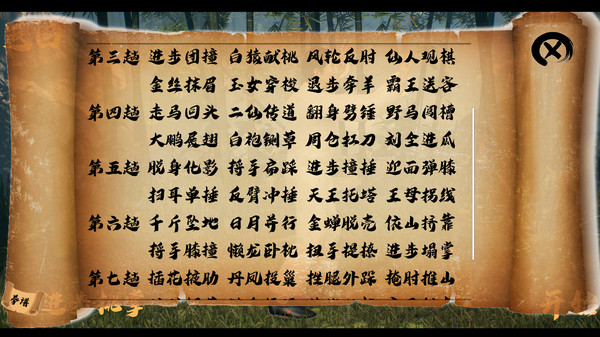 第三趟 进步团撞 白猿献桃 风轮反肘 仙人观棋
金丝抹眉 玉女穿梭 退步牵羊 霸王送客
第四趟 走马回头 二仙传道 翻身劈锤 野马闯槽
大鹏展翅 白袍铡草 周仓扛刀 刘全进瓜
第五趟 脱身化影 捋手扁踩 进步撞捶 迎面弹膝
扫耳单捶 反臂冲捶 天王托塔 王母拐线
第六趟 千斤坠地 日月并行 金蝉脱壳 依山挤靠
捋手膝撞 懒龙卧枕 扭手提捼 进步塌掌
第七趟 插花掖肋 丹凤投巢 挫腿外踩 掩肘推山
拳谱